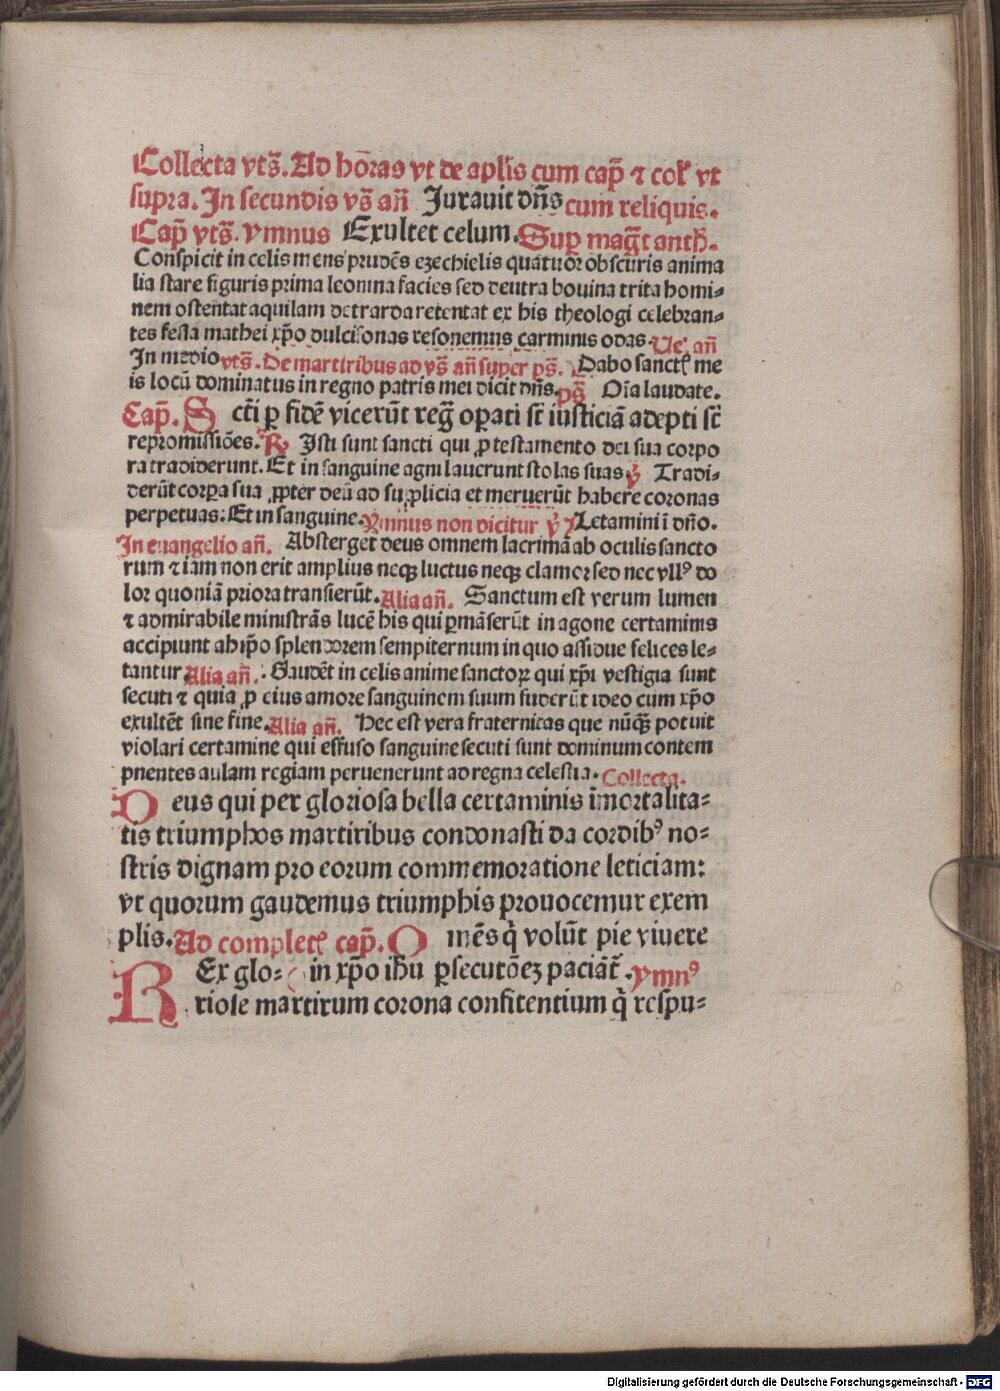 Collecta vts̄. Ad hōras vt de apl'is cum cap̄ ⁊ col' vt
supra. In secundis vs̄ an̄ Jurauit dn̄s cum reliquis.
Cap̄ vts̄. ymnus Exultet celum. Sup magt̄ anth̄.
Conspicit in celis mens prudēs ezechielis quatuor obscuris anima
lia stare figuris prima leonina facies sed deutra bouina trita homi⸗
nem ostentat aquilam detrarda retentat ex his theologi celebran⸗
tes festa mathei xp̄o dulcisonas resonemus carminis odas. Ue' an̄
In medio vts̄. De martiribus ad vs̄ an̄ super ps̄. Dabo sanct' me
is locū dominatus in regno patris mei dicit dn̄s. ps̄ Oīa laudate.
Cap̄. S cti ꝑ fidē vicerūt reḡ oꝑati st̄ iusticiā adepti st̄
repromissiōes. ℟ Isti sunt sancti qui ꝓ testamento dei sua corpo
ra tradiderunt. Et in sanguine agni lauerunt stolas suas ℣ Tradi⸗
derūt corꝑa sua ꝓpter deū ad supplicia et meruerūt habere coronas
perpetuas: Et in sanguine. Ymnus non dicitur ℣ Letamini ī dn̄o.
In euangelio an̄. Absterget deus omnem lacrimā ab oculis sancto
rum ⁊ iam non erit amplius neqꝫ luctus neqꝫ clamor sed nec vll⁹ do
lor quoniā priora transierūt. Alia an̄. Sanctum est verum lumen
⁊ admirabile ministrās lucē his qui ꝑmāserūt in agone certaminis
accipiunt ab ip̄o splendorem sempiternum in quo assidue felices le⸗
tantur Alia an̄. Gaudēt in celis anime sanctoꝝ qui xp̄i vestigia sunt
secuti ⁊ quia ꝓ eius amore sanguinem suum fuderūt ideo cum xp̄o
exultēt sine fine. Alia an̄. Hec est vera fraternitas que nūqꝫ potuit
violari certamine qui effuso sanguine secuti sunt dominum contem
pnentes aulam regiam peruenerunt ad regna celestia. Collecta.
D eus qui per gloriosa bella certaminis īmortalita⸗
tis triumphos martiribus condonasti da cordib⁹ no⸗
stris dignam pro eorum commemoratione leticiam:
vt quorum gaudemus triumphis prouocemur exem
plis. Ad complet' cap̄. O mēs q̄ volūt pie viuere
R Ex glo⸗ in xp̄o ih̄u ꝑsecutōeꝫ paciāt̄. ymn⁹
riose martirum corona confitentium q̄ respu⸗
Digitalisierung gefördert durch die Deutsche Forschungsgemeinschaft - DFG